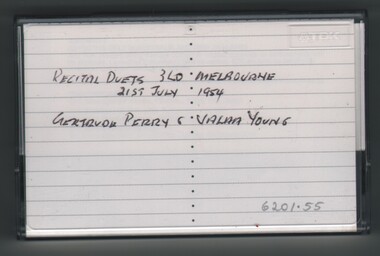 RECITAL DUETS 3LO · MELBOURNE
21ST JULY 1954
GERTRUDE PERRY & YOUNG
6201.55